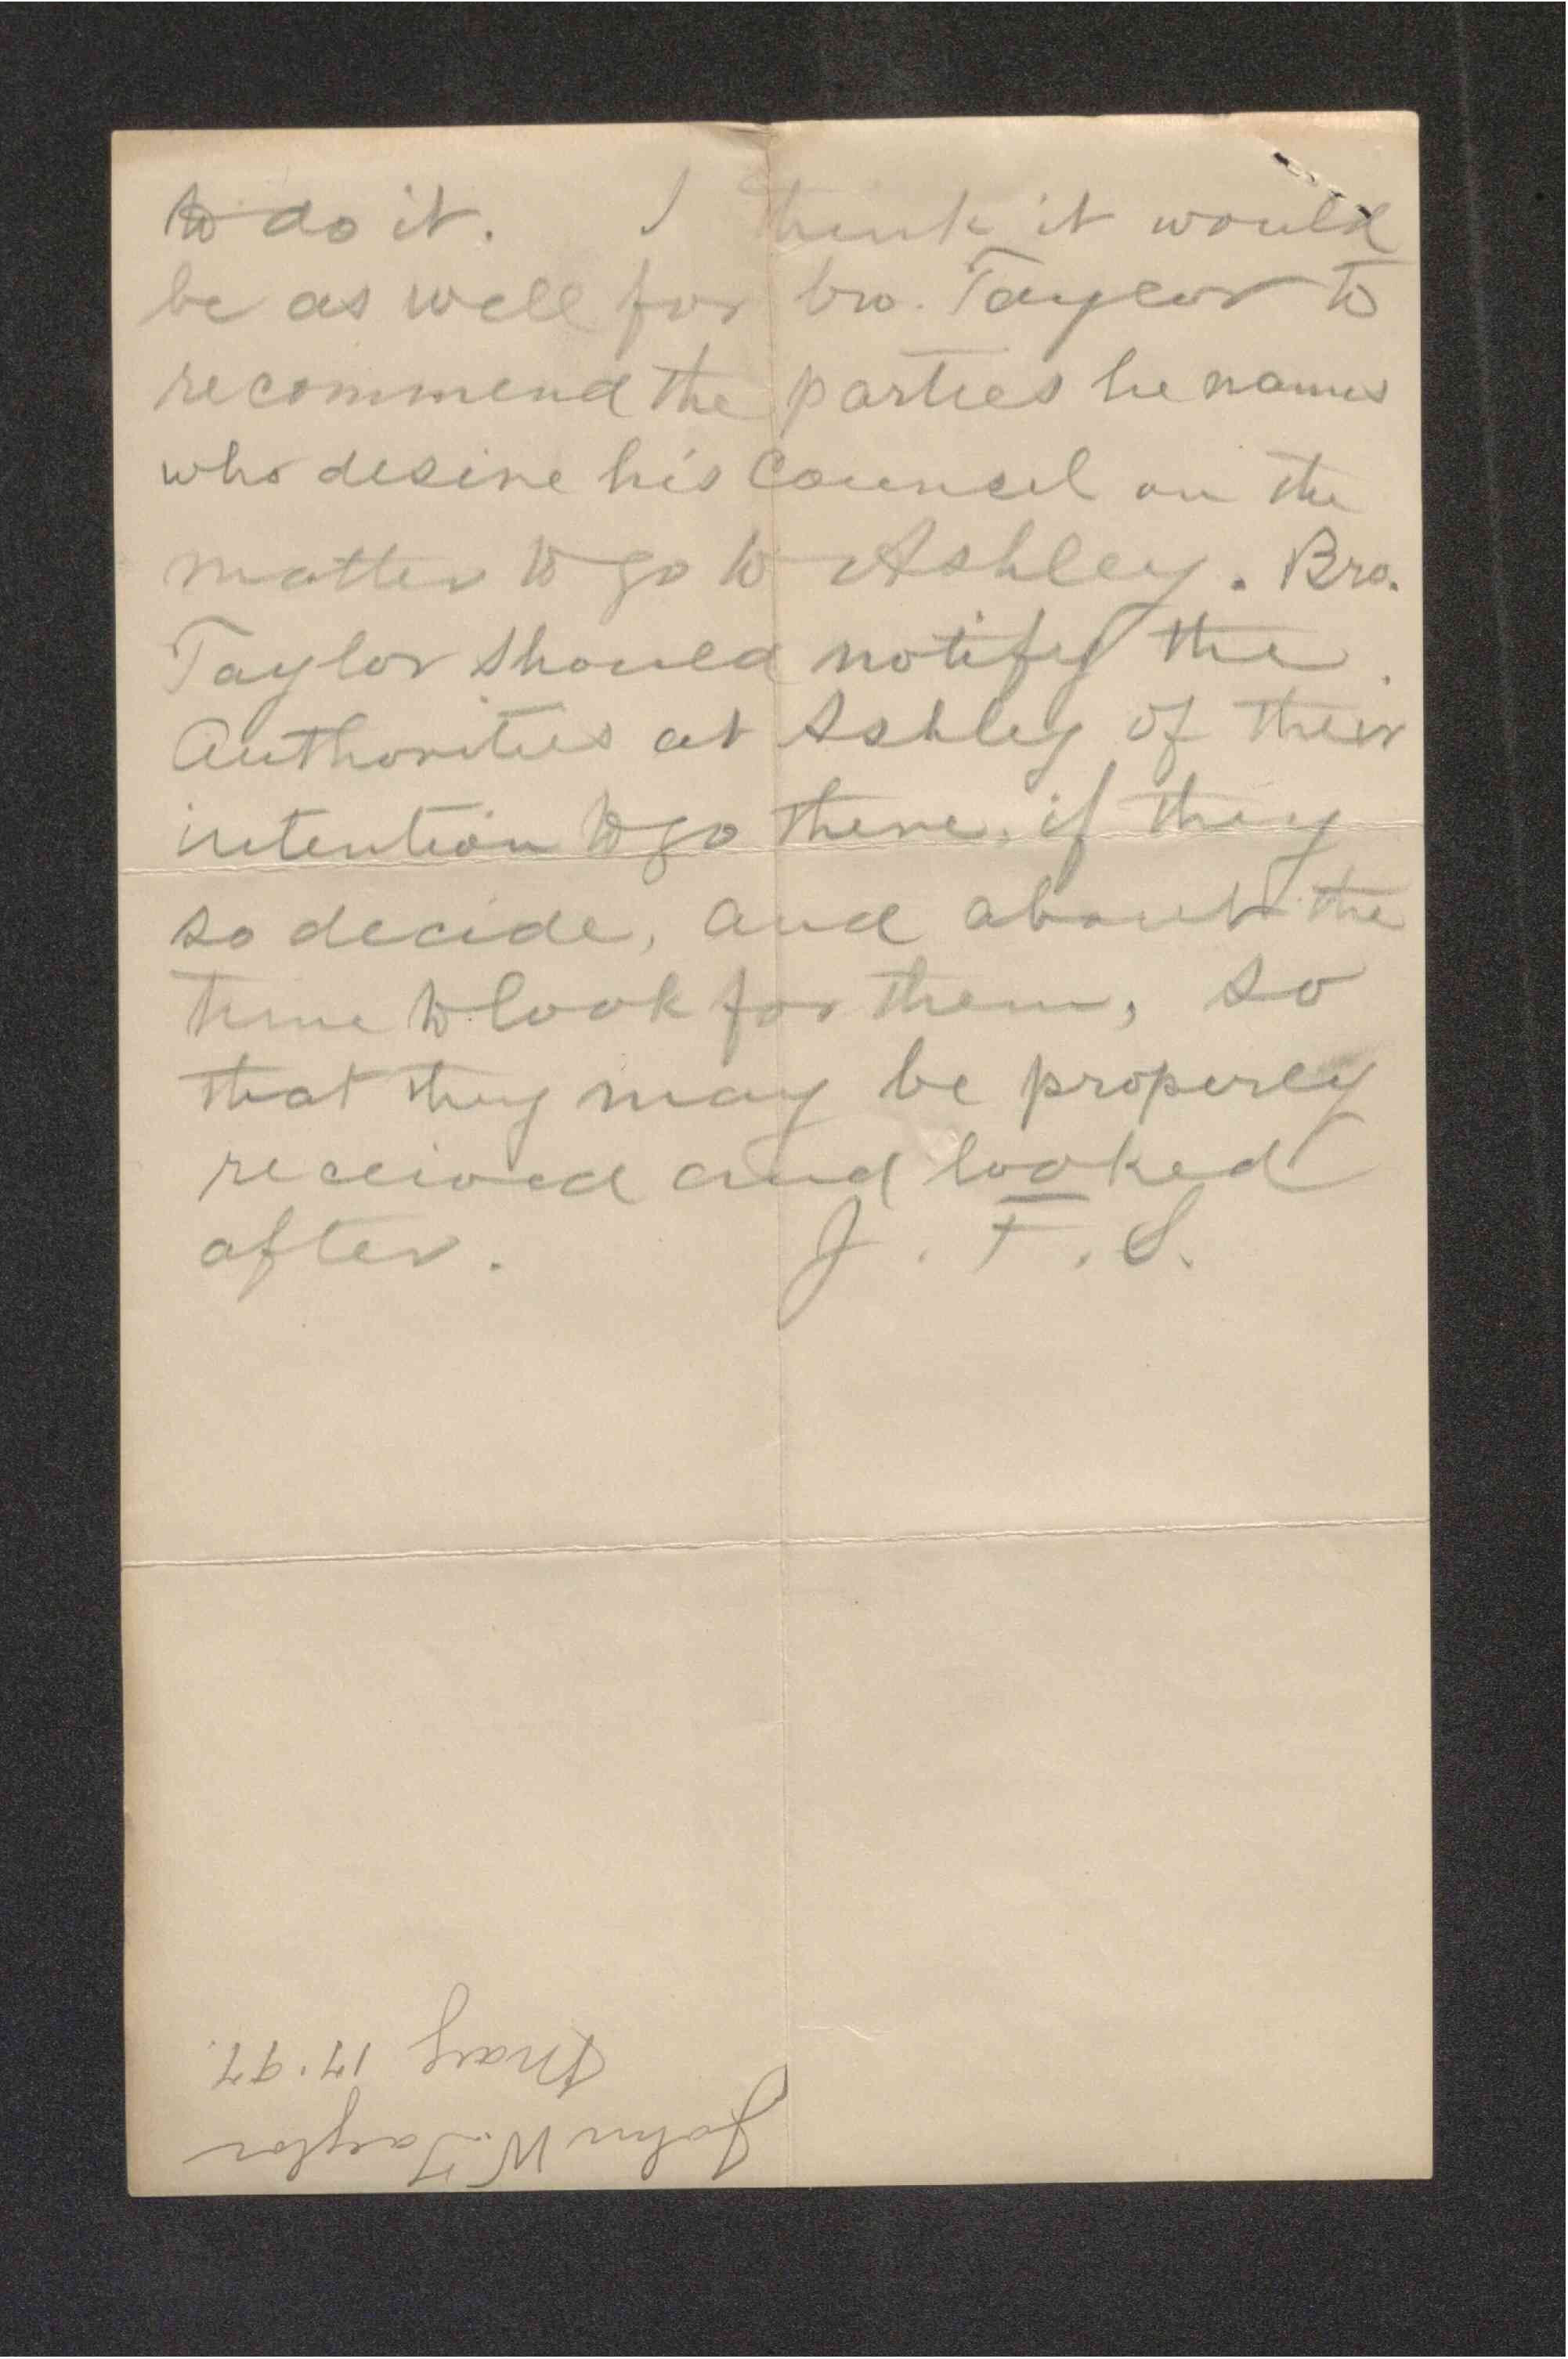 to do it. I think it would
be as well for bro. Taylor to
recommend the parties he names
who desire his Counsel on the
matter to go to Ashley. Bro.
Taylor should notify the
Authorities at Ashley of their
intention to go there, if they
so decide, and about the
time to look for them, so
that they may be properly
received and looked
after. J. F. S.
John W. Taylor
May 17.97.